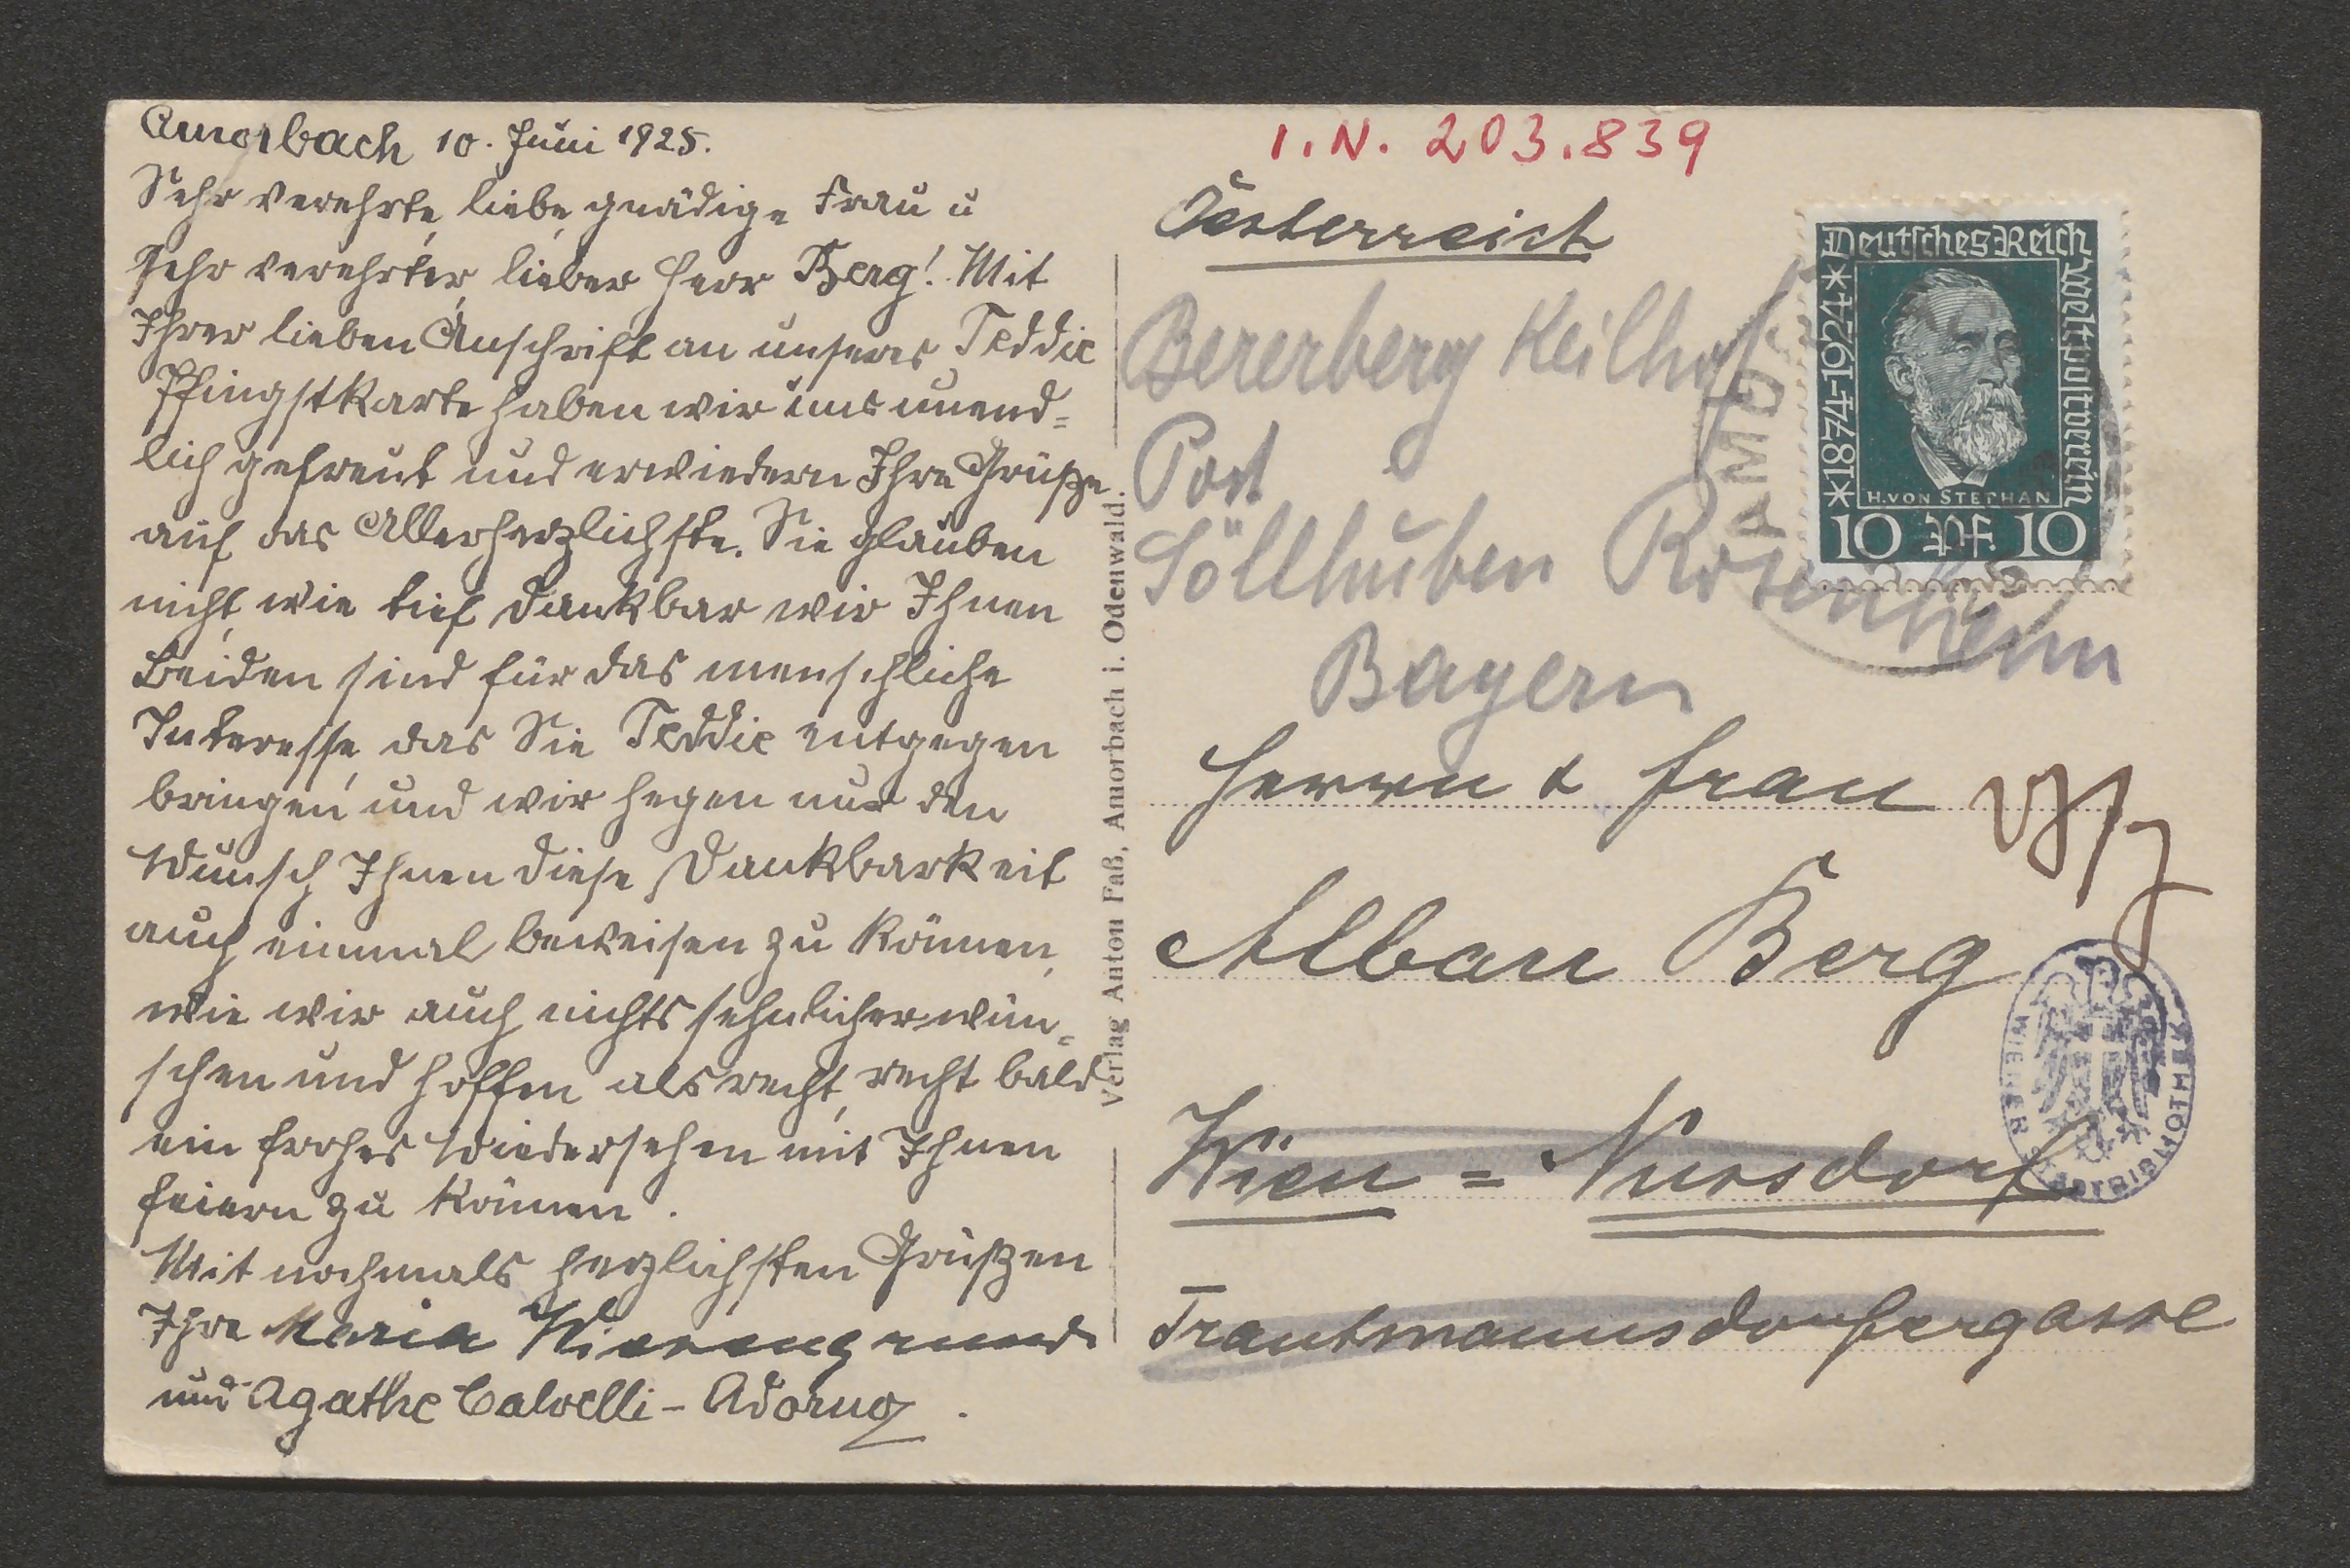 Amorbach 10. Juni 1925.
Sehr verehrte, liebe, gnädige Frau u
sehr verehrter, lieber Herr Berg! Mit
Ihrer lieben Anschrift an unseres Teddie
Pfingstkarte haben wir uns unend=
lich gefreut und erwiedern Ihre Grüße
auf das Allerherzlichste. Sie glauben
nicht, wie tief dankbar wir Ihnen
Beiden sind für das menschliche
Interesse, das Sie Teddie entgegen
bringen und wir hegen nur den
Wunsch Ihnen diese Dankbarkeit
auch einmal beweisen zu können,
wie wir auch nichts sehnlicher wün=
schen und hoffen als recht, recht bald
ein frohes Wiedersehen mit Ihnen
feiern zu können.
Mit nochmals herzlichsten Grüßen
Ihre Maria Wiesengrund
und Agathe Calvelli-Adorno.
Verlag Anton Faß, Amorbach i. Odenwald.
I.N. 203.839
Oesterreich
Deutsches Reich
Weltpostverein
*1874-1924*
H. VON STEPHAN
10 Pf. 10
AMO
Berg Keilhof
Post
Söllhuben Rosenheim
Bayern
Herrn & Frau
Alban Berg
Wien = Nussdorf
Trautmannsdorfergasse
WIENER STADTBIBLIOTHEK